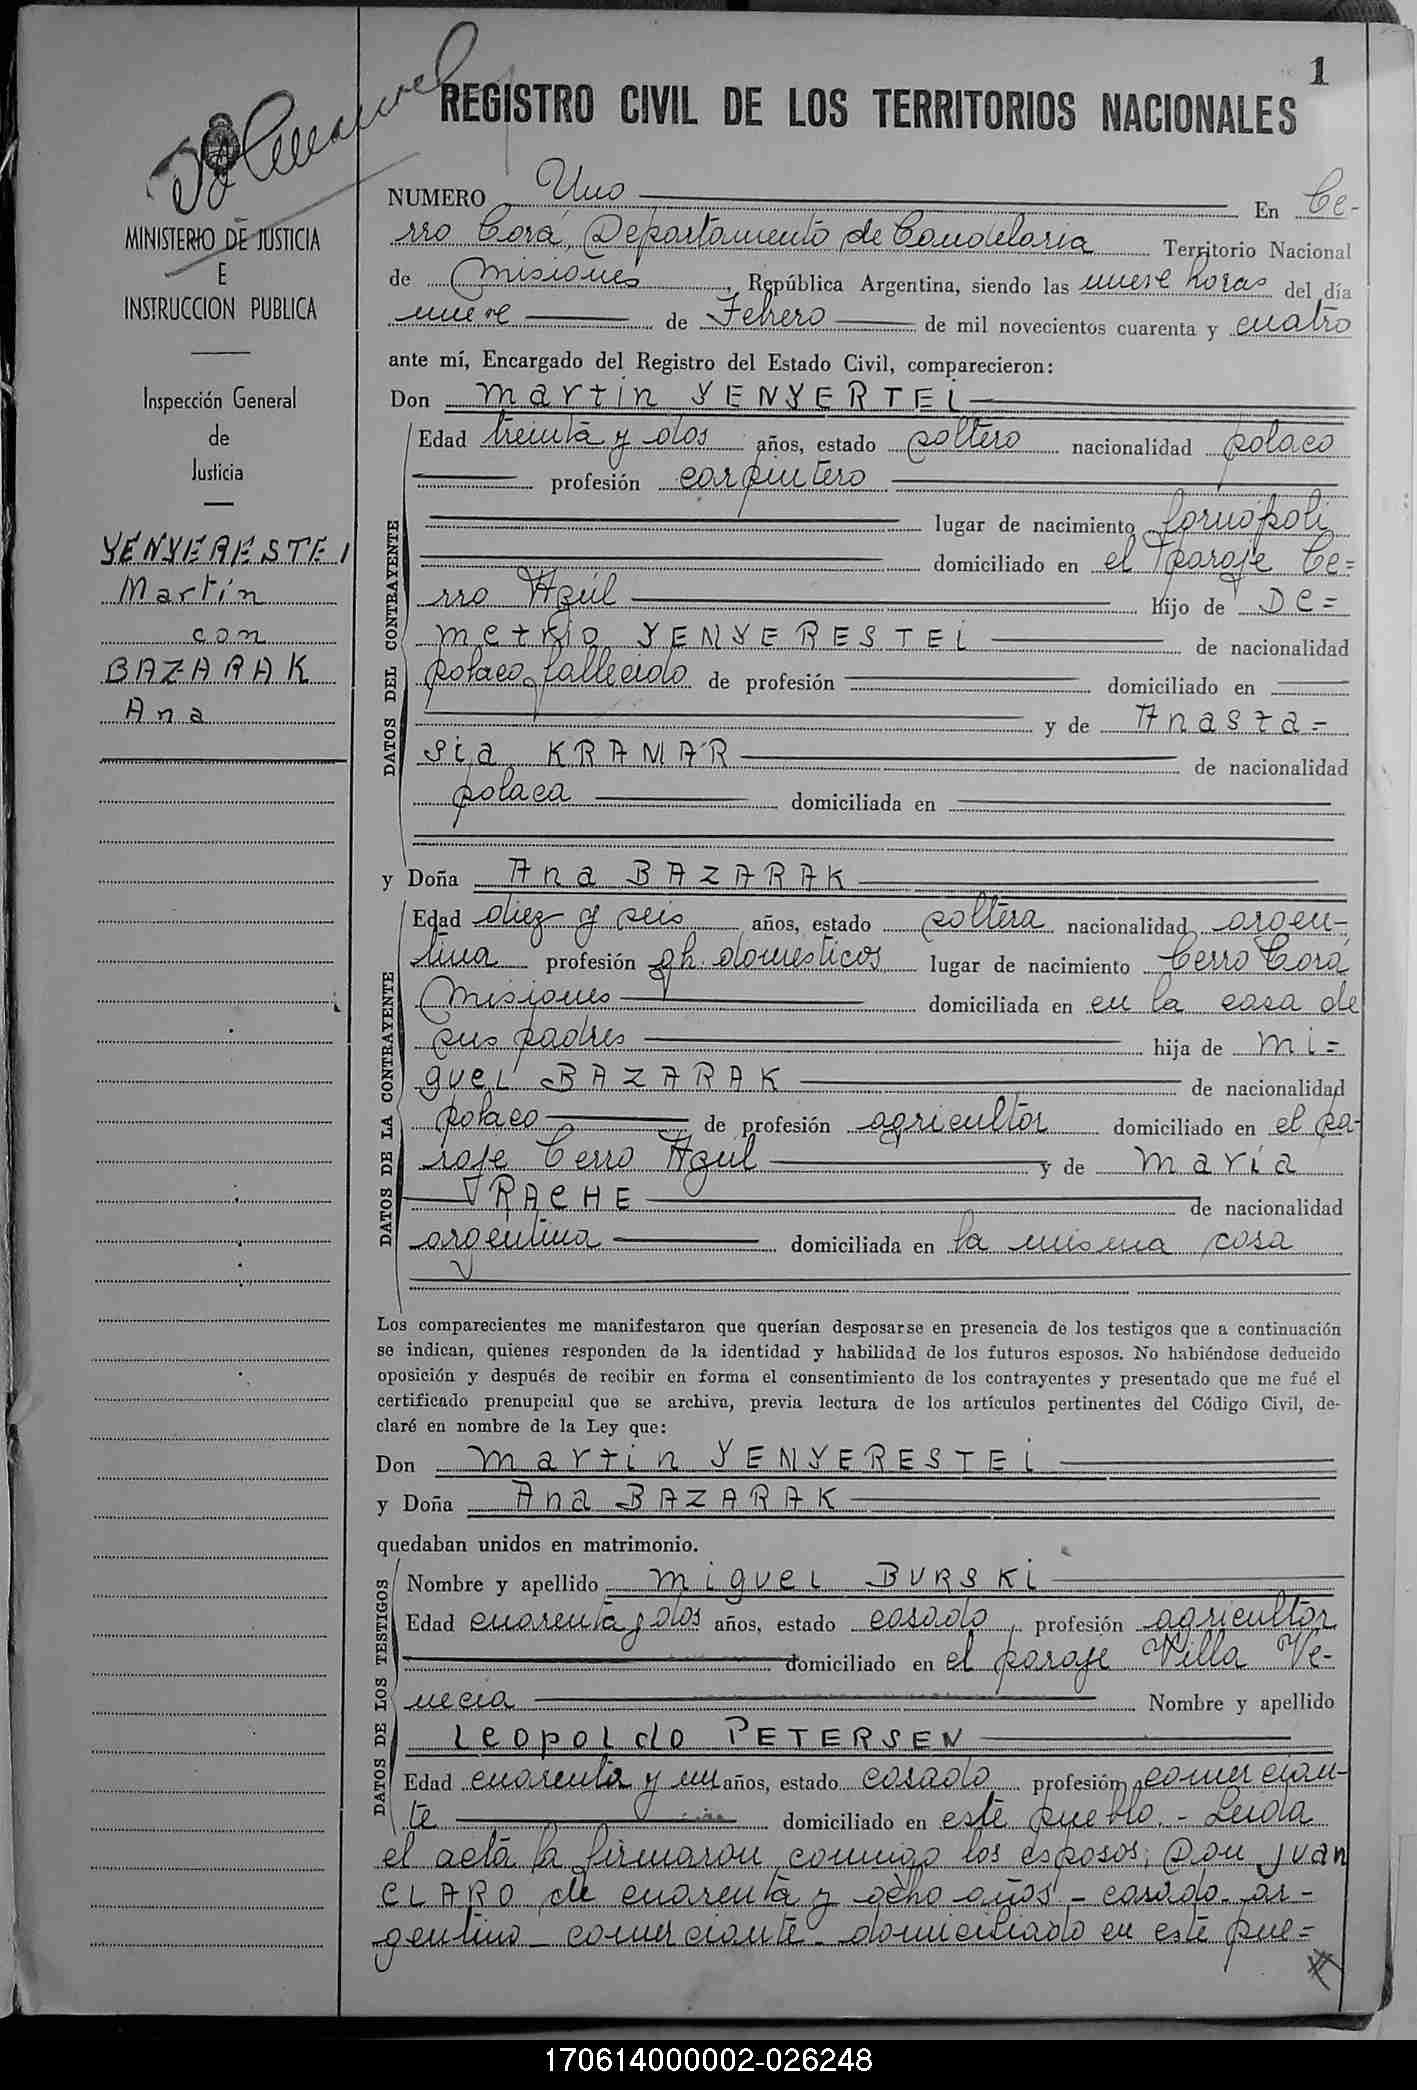 1
REGISTRO CIVIL DE LOS TERRITORIOS NACIONALES
MINISTERIO DE JUSTICIA
E
INSTRUCCION PUBLICA
Inspección General
de
Justicia
YENYERESTEI
Martín
con
BAZARAK
Ana
NUMERO Uno En Ce-
rro Corá, Departamento de Candelaria Territorio Nacional
de Misiones, República Argentina, siendo las nueve horas del día
nueve de Febrero de mil novecientos cuarenta y cuatro
ante mí, Encargado del Registro del Estado Civil, comparecieron:
Don Martin YENYERTEI
DATOS DEL CONTRAYENTE
Edad treinta y dos años, estado soltero nacionalidad polaco
profesión carpintero
lugar de nacimiento
domiciliado en el paraje Ce=
rro Azúl Hijo de De=
metrio YENYERESTEI de nacionalidad
polaco, fallecido de profesión domiciliado en
y de Anasta=
sia KRAMAR de nacionalidad
polaca domiciliada en
y Doña Ana BAZARAK
DATOS DE LA CONTRAYENTE
Edad diez y seis años, estado soltera nacionalidad argen-
tina profesión qh. domesticos lugar de nacimiento Cerro Corá
Misiones domiciliada en en la casa de
sus padres hija de Mi=
guel BAZARAK de nacionalidad
polaco de profesión agricultor domiciliado en el pa-
raje Cerro Azul y de María
DRACHE de nacionalidad
argentina domiciliada en la misma casa
Los comparecientes me manifestaron que querían desposarse en presencia de los testigos que a continuación
se indican, quienes responden de la identidad y habilidad de los futuros esposos. No habiéndose deducido
oposición y después de recibir en forma el consentimiento de los contrayentes y presentado que me fué el
certificado prenupcial que se archiva, previa lectura de los artículos pertinentes del Código Civil, de-
claré en nombre de la Ley que:
Don Martin YENYERESTEI
y Doña Ana BAZARAK
quedaban unidos en matrimonio.
DATOS DE LOS TESTIGOS
Nombre y apellido Miguel BURSKI
Edad cuarenta y dos años, estado casado, profesión agricultor
domiciliado en el paraje Villa Ve-
necia Nombre y apellido
Leopoldo PETERSEN
Edad cuarenta y un años, estado casado profesión comercian-
te domiciliado en este pueblo.- Leida
el acta la firmaron conmigo los esposos, Don Juan
CLARO de cuarenta y ocho años - casado - ar-
gentino - comerciante - domiciliado en este pue=
170614000002-026248